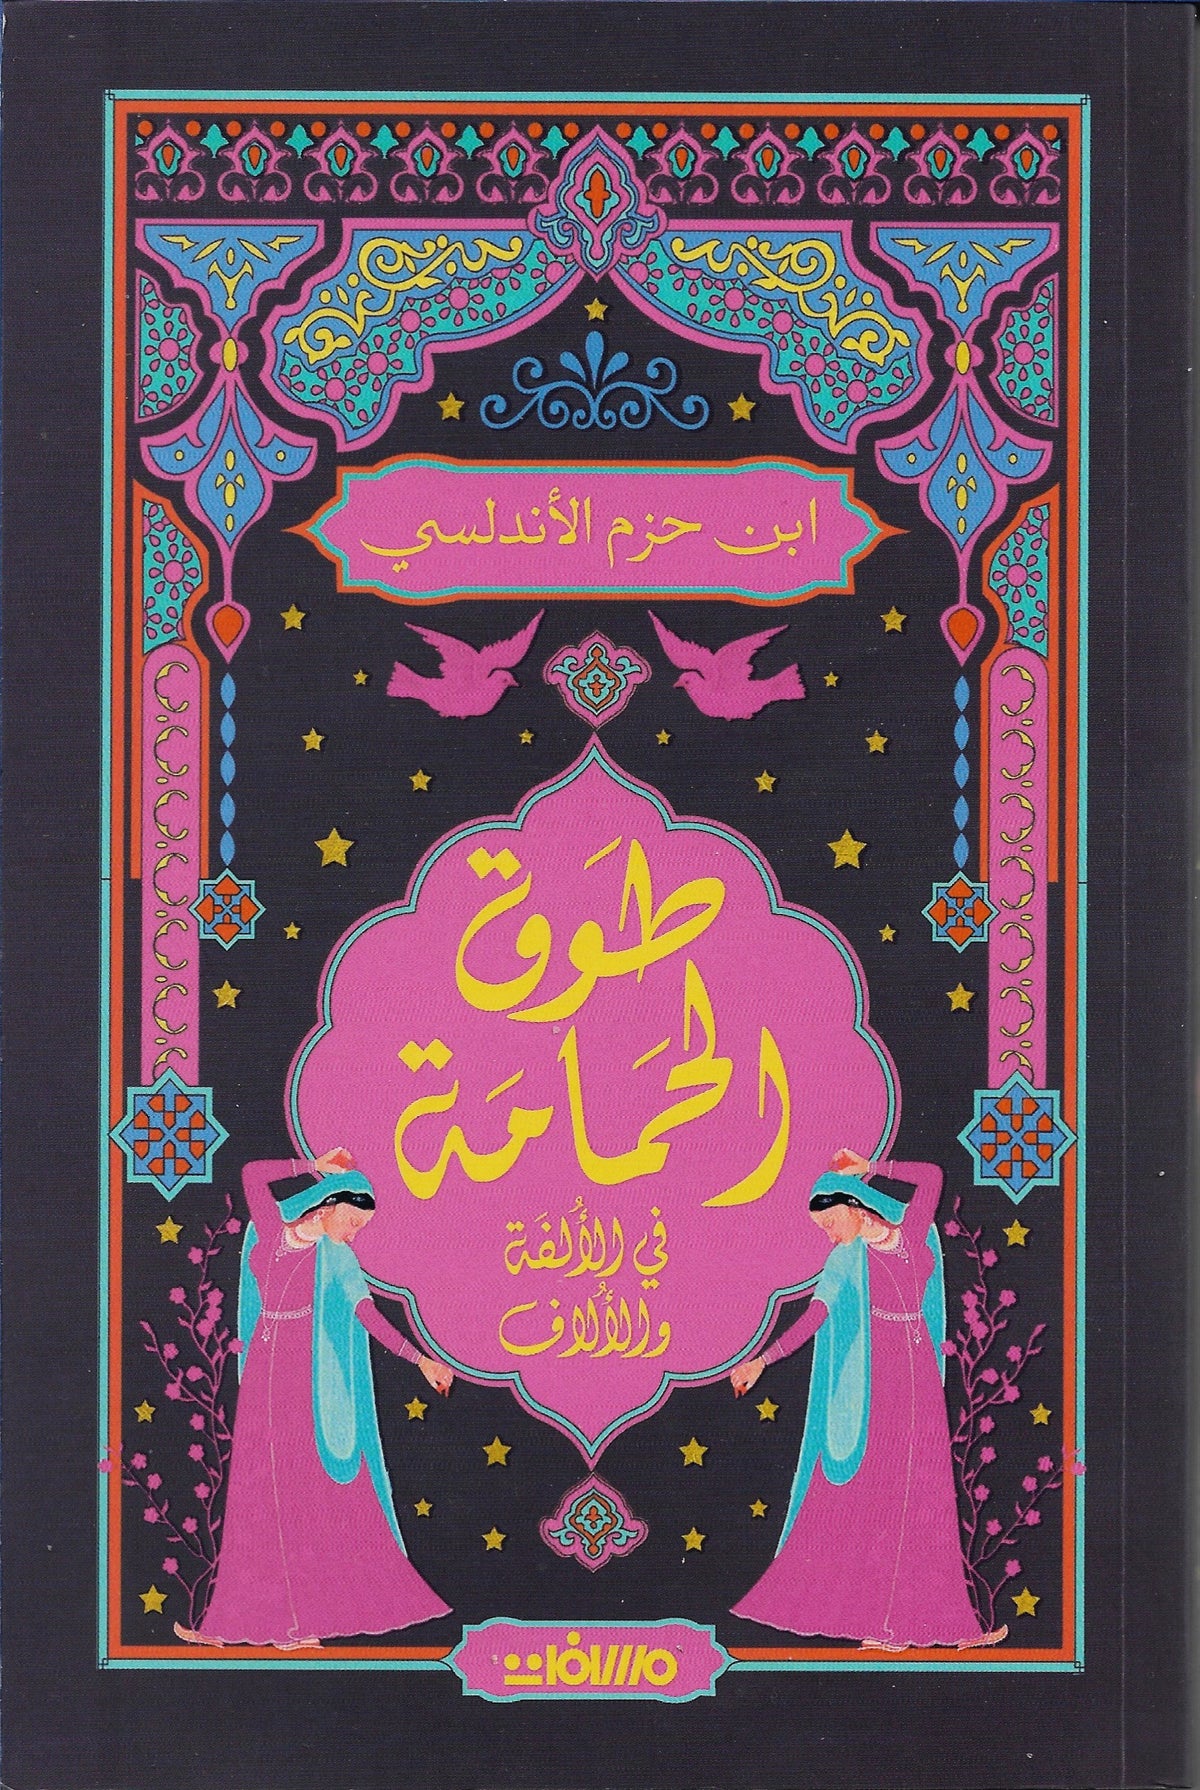 ابن حزم الأندلسي
طَوق
الحمَامَة
في الأُلفَة
والأُلاف
مسافات